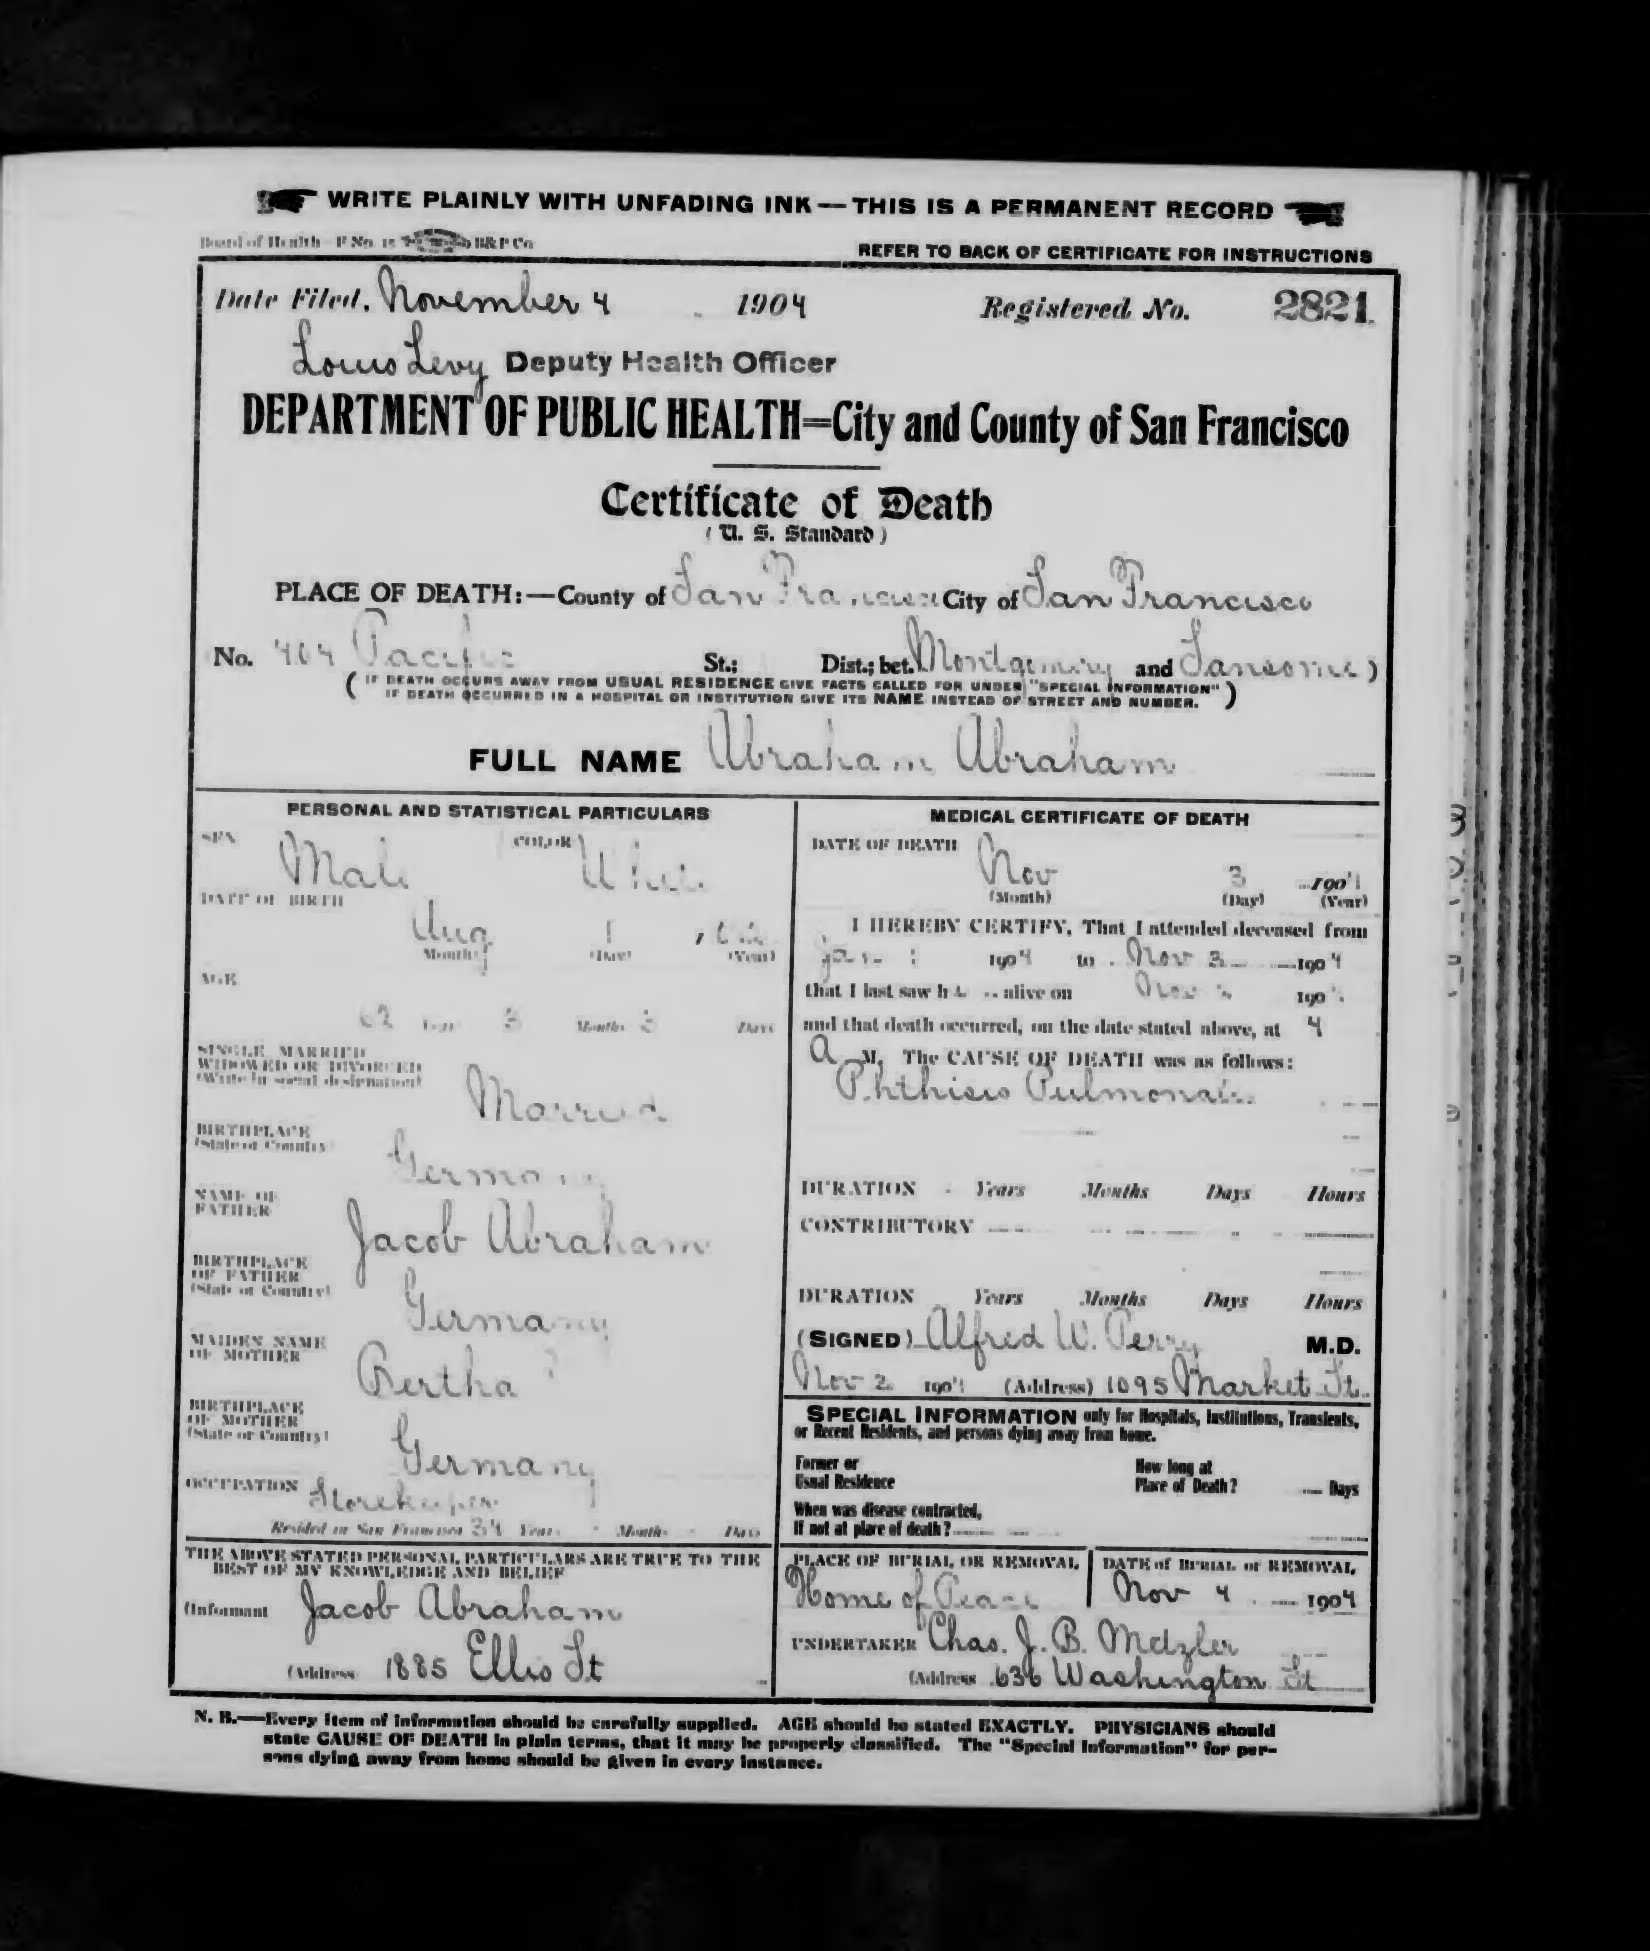 WRITE PLAINLY WITH UNFADING INK — THIS IS A PERMANENT RECORD
Board of Health F No. 15 B&P Co
REFER TO BACK OF CERTIFICATE FOR INSTRUCTIONS
Date Filed, November 4 1904 Registered No. 2821
Louis Levy Deputy Health Officer
DEPARTMENT OF PUBLIC HEALTH=City and County of San Francisco
Certificate of Death
(U. S. Standard)
PLACE OF DEATH:—County of San Francisco City of San Francisco
No. 404 Pacific St.; Dist.; bet. Montgomery and Sansome)
(IF DEATH OCCURS AWAY FROM USUAL RESIDENCE GIVE FACTS CALLED FOR UNDER "SPECIAL INFORMATION"
IF DEATH OCCURRED IN A HOSPITAL OR INSTITUTION GIVE ITS NAME INSTEAD OF STREET AND NUMBER.)
FULL NAME Abraham Abraham
PERSONAL AND STATISTICAL PARTICULARS
SEX Male COLOR White
DATE OF BIRTH
Aug 1
(Month) (Day) (Year)
AGE
62 Years 3 Months Days
SINGLE, MARRIED
WIDOWED OR DIVORCED
(Write in social designation)
Married
BIRTHPLACE
(State or Country)
Germany
NAME OF
FATHER
Jacob Abraham
BIRTHPLACE
OF FATHER
(State or Country)
Germany
MAIDEN NAME
OF MOTHER
Bertha ?
BIRTHPLACE
OF MOTHER
(State or Country)
Germany
OCCUPATION Storekeeper
Resided in San Francisco 34 Years Months Days
THE ABOVE STATED PERSONAL PARTICULARS ARE TRUE TO THE
BEST OF MY KNOWLEDGE AND BELIEF
(Informant Jacob Abraham
(Address 1885 Ellis St
MEDICAL CERTIFICATE OF DEATH
DATE OF DEATH
Nov 3 1904
(Month) (Day) (Year)
I HEREBY CERTIFY, That I attended deceased from
Jan 1 1904 to Nov 3 1904
that I last saw h alive on Nov 190
and that death occurred, on the date stated above, at 4
A M. The CAUSE OF DEATH was as follows:
Phthisis Pulmonalis
DURATION Years Months Days Hours
CONTRIBUTORY
DURATION Years Months Days Hours
(SIGNED) Alfred W. Perry M.D.
Nov 2 1904 (Address) 1095 Market St.
SPECIAL INFORMATION only for Hospitals, Institutions, Transients,
or Recent Residents, and persons dying away from home.
Former or
Usual Residence
How long at
Place of Death? Days
When was disease contracted,
If not at place of death?
PLACE OF BURIAL OR REMOVAL
Home of Peace
DATE of BURIAL or REMOVAL
Nov 4 1904
UNDERTAKER Chas. J. B. Metzler
(Address 636 Washington St
N. B.—Every item of information should be carefully supplied. AGE should be stated EXACTLY. PHYSICIANS should
state CAUSE OF DEATH in plain terms, that it may be properly classified. The "Special Information" for per-
sons dying away from home should be given in every instance.